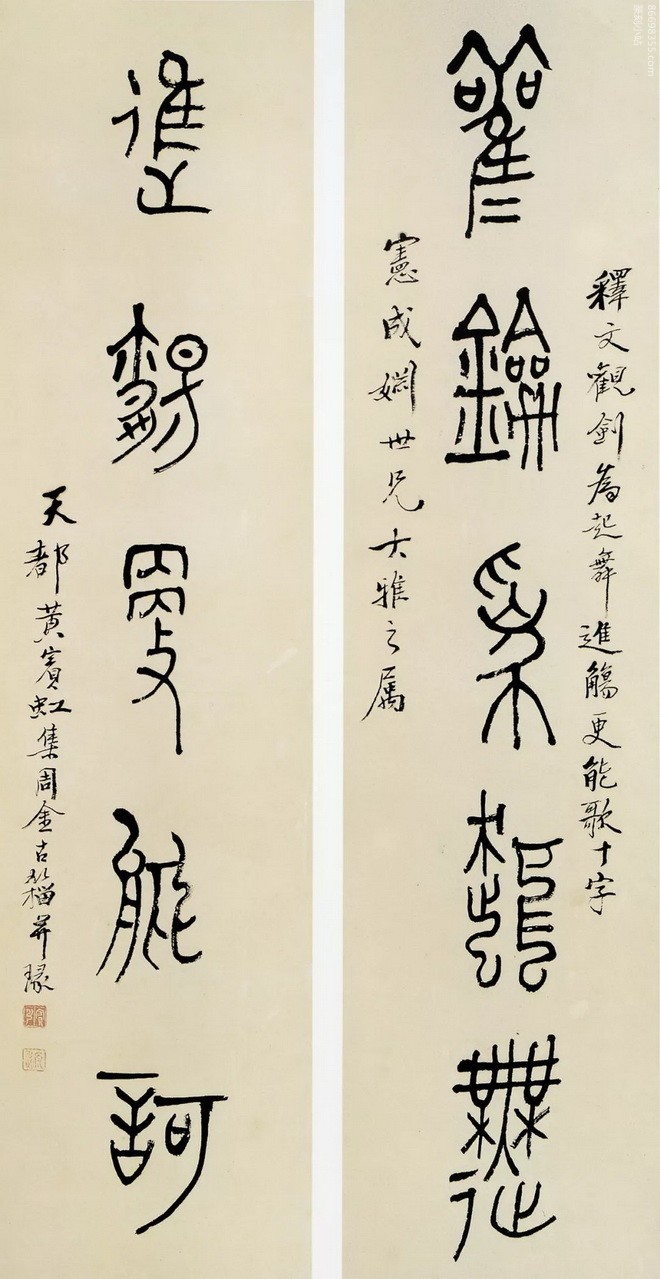 釋文觀劍為起舞進觴更能歌十字
觀鐱為起舞
憲成婣世兄大雅之屬
進觴更能訶
天都黃賓虹集周金古籀并瑑
86698355.com